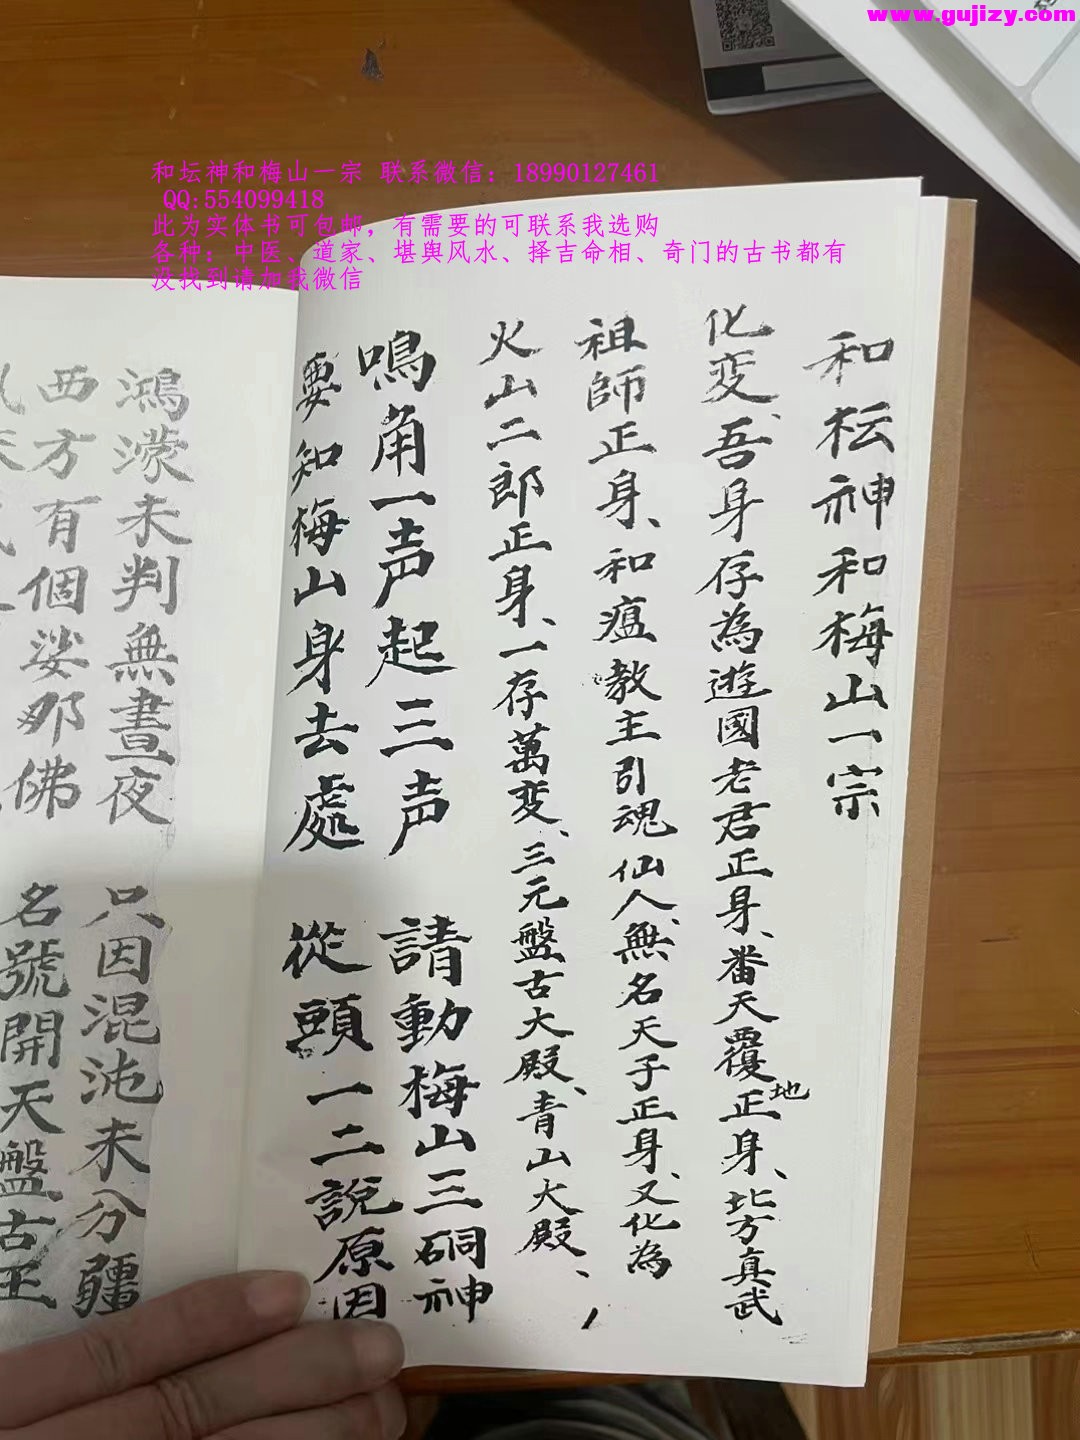 www.gujizy.com
和坛神和梅山一宗 联系微信：18990127461
QQ:554099418
此为实体书可包邮，有需要的可联系我选购
各种；中医、道家、堪舆风水、择吉命相、奇门的古书都有
没找到请加我微信
和枟神和梅山一宗
化変、吾身存為遊國老君正身、番天覆地正身、北方真武
祖師正身、和瘟教主引魂仙人、無名天子正身、又化為
火山二郎正身、一存萬变、三元盤古大殿、青山大殿、
鳴角一声起三声 請動梅山三硐神
要知梅山身去處 從頭一二說原因
鴻濛未判無晝夜 只因混沌未分疆
西方有個娑那佛 名號開天盤古王